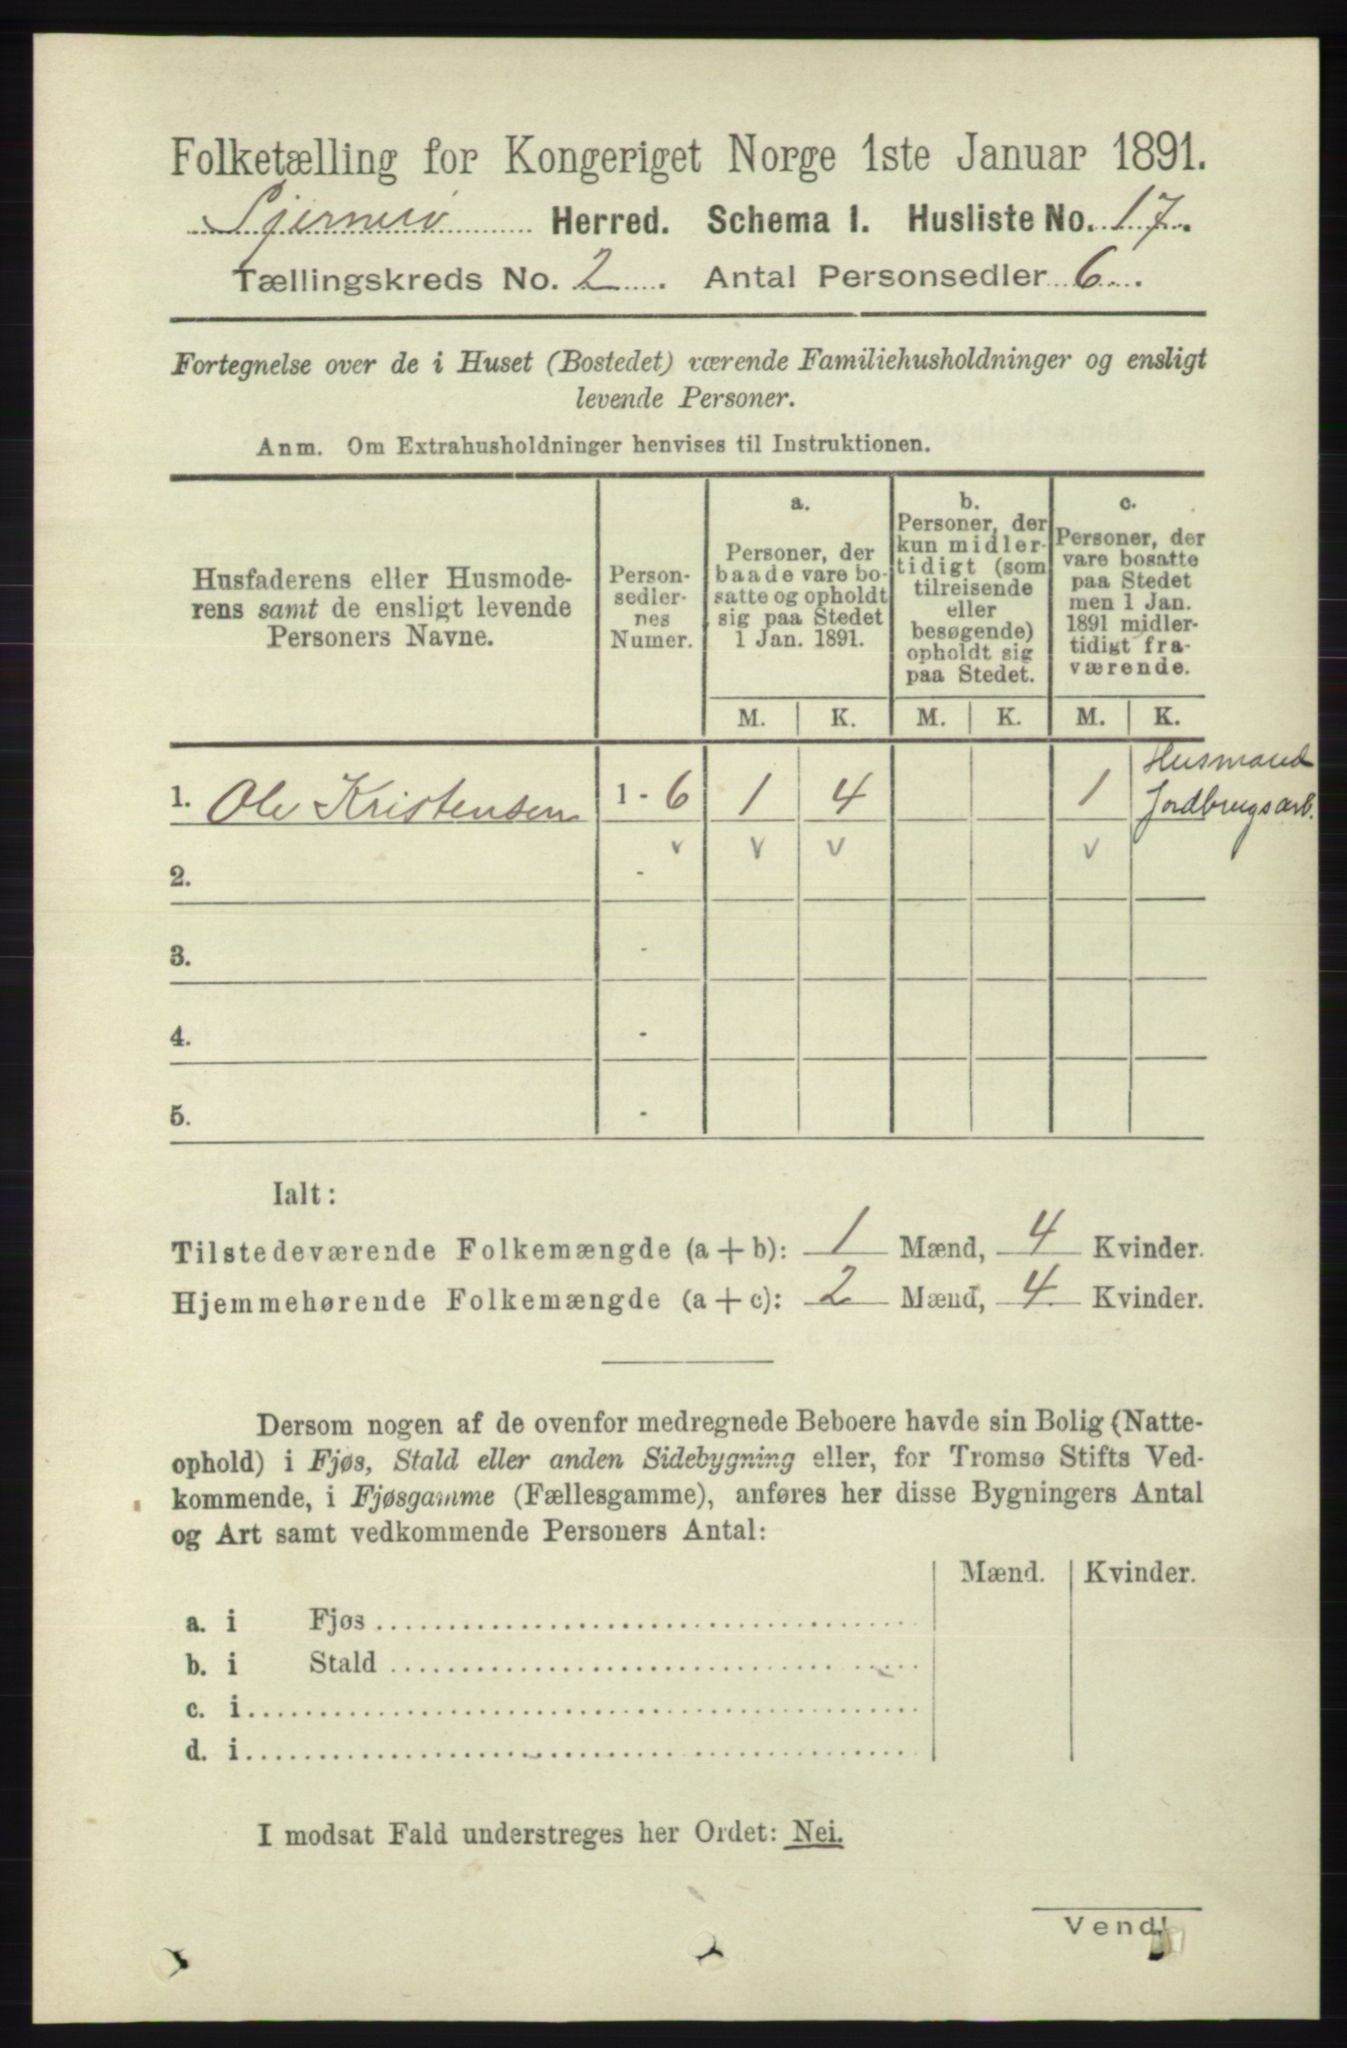 Folketælling for Kongeriget Norge 1ste Januar 1891.
Sjernerø Herred. Schema 1. Husliste No. 17.
Tællingskreds No. 2. Antal Personsedler 6.
Fortegnelse over de i Huset (Bostedet) værende Familiehusholdninger og ensligt
levende Personer.
Anm. Om Extrahusholdninger henvises til Instruktionen.
Husfaderens eller Husmode-
rens samt de ensligt levende
Personers Navne.
Person-
sedler-
nes
Numer.
a.
Personer, der
baade vare bo-
satte og opholdt
sig paa Stedet
1 Jan. 1891.
b.
Personer, der
kun midler-
tidigt (som
tilreisende
eller
besøgende)
opholdt sig
paa Stedet.
c.
Personer, der
vare bosatte
paa Stedet
men 1 Jan.
1891 midler-
tidigt fra-
værende.
M. K. M. K. M. K.
1. Ole Kristensen 1 - 6 1 4 1 Husmand
Jordbrugsarb.
v v v v
2. -
3. -
4. -
5. -
Ialt:
Tilstedeværende Folkemængde (a + b): 1 Mænd, 4 Kvinder.
Hjemmehørende Folkemængde (a + c): 2 Mænd, 4 Kvinder.
Dersom nogen af de ovenfor medregnede Beboere havde sin Bolig (Natte-
ophold) i Fjøs, Stald eller anden Sidebygning eller, for Tromsø Stifts Ved-
kommende, i Fjøsgamme (Fællesgamme), anføres her disse Bygningers Antal
og Art samt vedkommende Personers Antal:
Mænd. Kvinder.
a. i Fjøs
b. i Stald
c. i
d. i
I modsat Fald understreges her Ordet: Nei.
Vend!